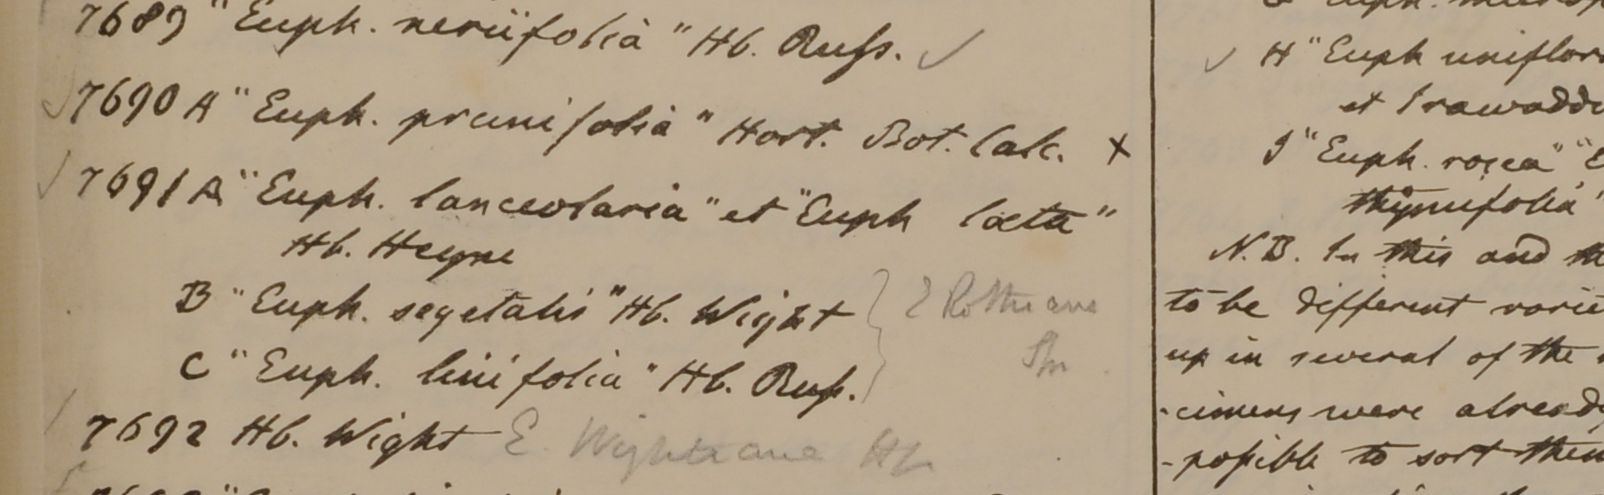 7689 "Euph. neriifolia" Hb. Russ. ✓
7690 A "Euph. prunifolia" Hort. Bot. Calc. ×
7691 A "Euph. lanceolaria" et "Euph laeta"
Hb. Heyne
B "Euph. segetalis" Hb. Wight
C "Euph. linifolia" Hb. Russ.
E Rothiana
Spr
7692 Hb. Wight E. Wightiana Hb
H "Euph uniflora
et Irawaddi
J "Euph. rosea" "E
thymifolia"
N.B. In this and th
to be different varie
up in several of the
-cimens were already
-possible to sort them